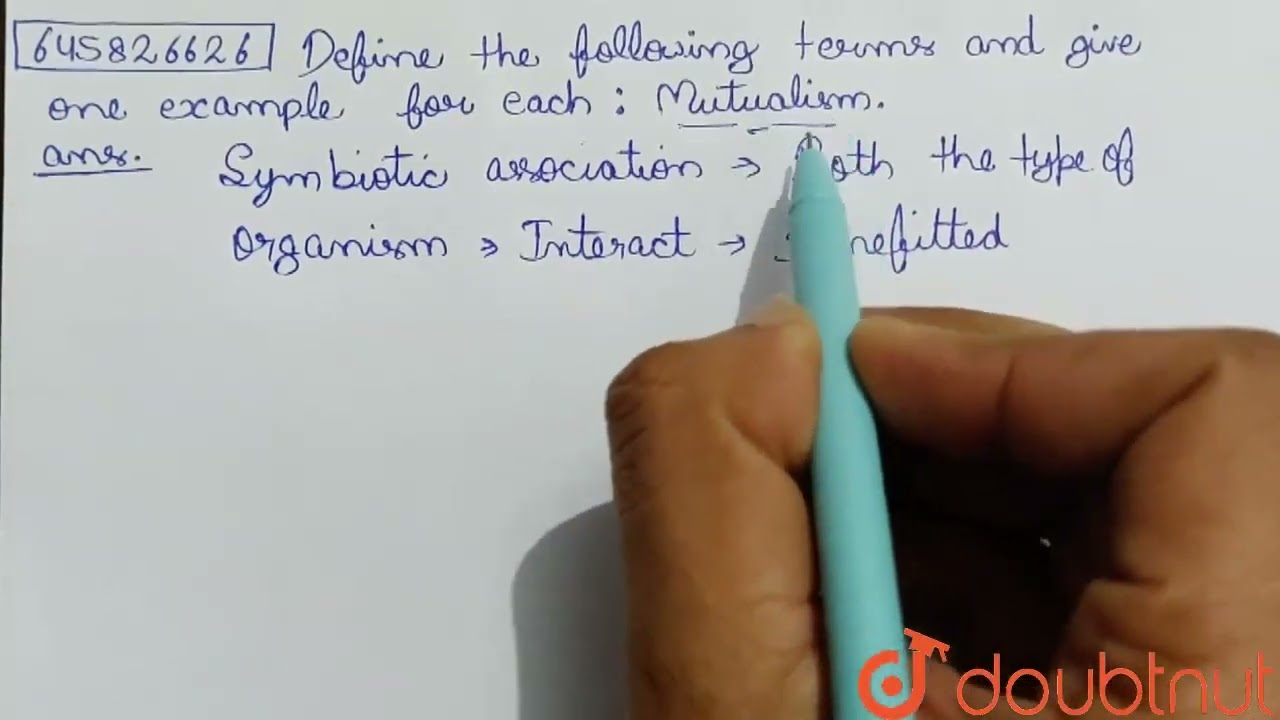 645826626 Define the following terms and give
one example for each : Mutualism.
ans. Symbiotic association → Both the type of
organism → Interact → nefitted
doubtnut